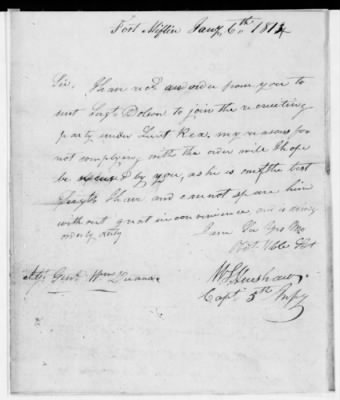 Fort Mifflin Jany 6th 1814
Sir. I have recd an order from you to
send Sergt Dolson to join the recruiting
party under Lieut Rea. my reasons for
not complying with the order will I hope
be excused by you, as he is one of the best
I have and cannot spare him
without great inconvenience
duty
I am Sir
Obt
Adjt Genl Wm Duane
Capt 5th Infy